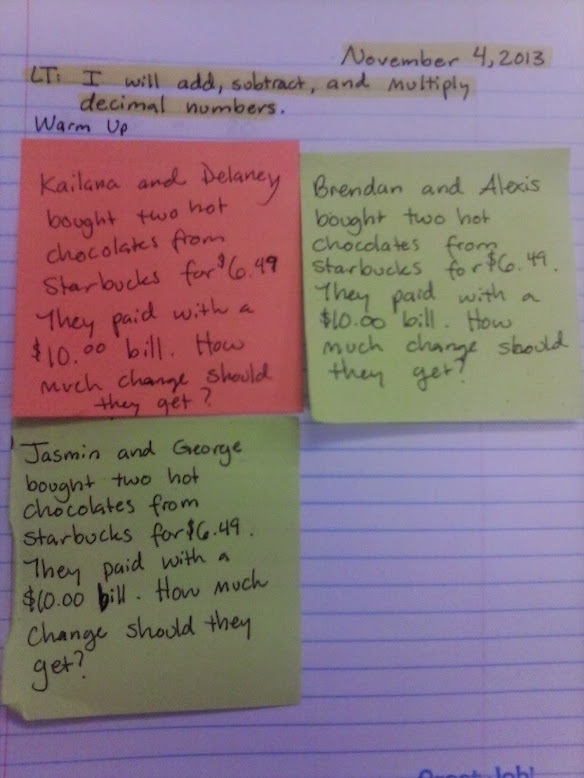 November 4, 2013
LT: I will add, subtract, and multiply
decimal numbers.
Warm Up
Kailana and Delaney
bought two hot
chocolates from
Starbucks for $6.49
They paid with a
$10.00 bill. How
much change should
they get?
Brendan and Alexis
bought two hot
chocolates from
Starbucks for $6.49.
They paid with a
$10.00 bill. How
much change should
they get?
Jasmin and George
bought two hot
chocolates from
Starbucks for $6.49.
They paid with a
$10.00 bill. How much
change should they
get?